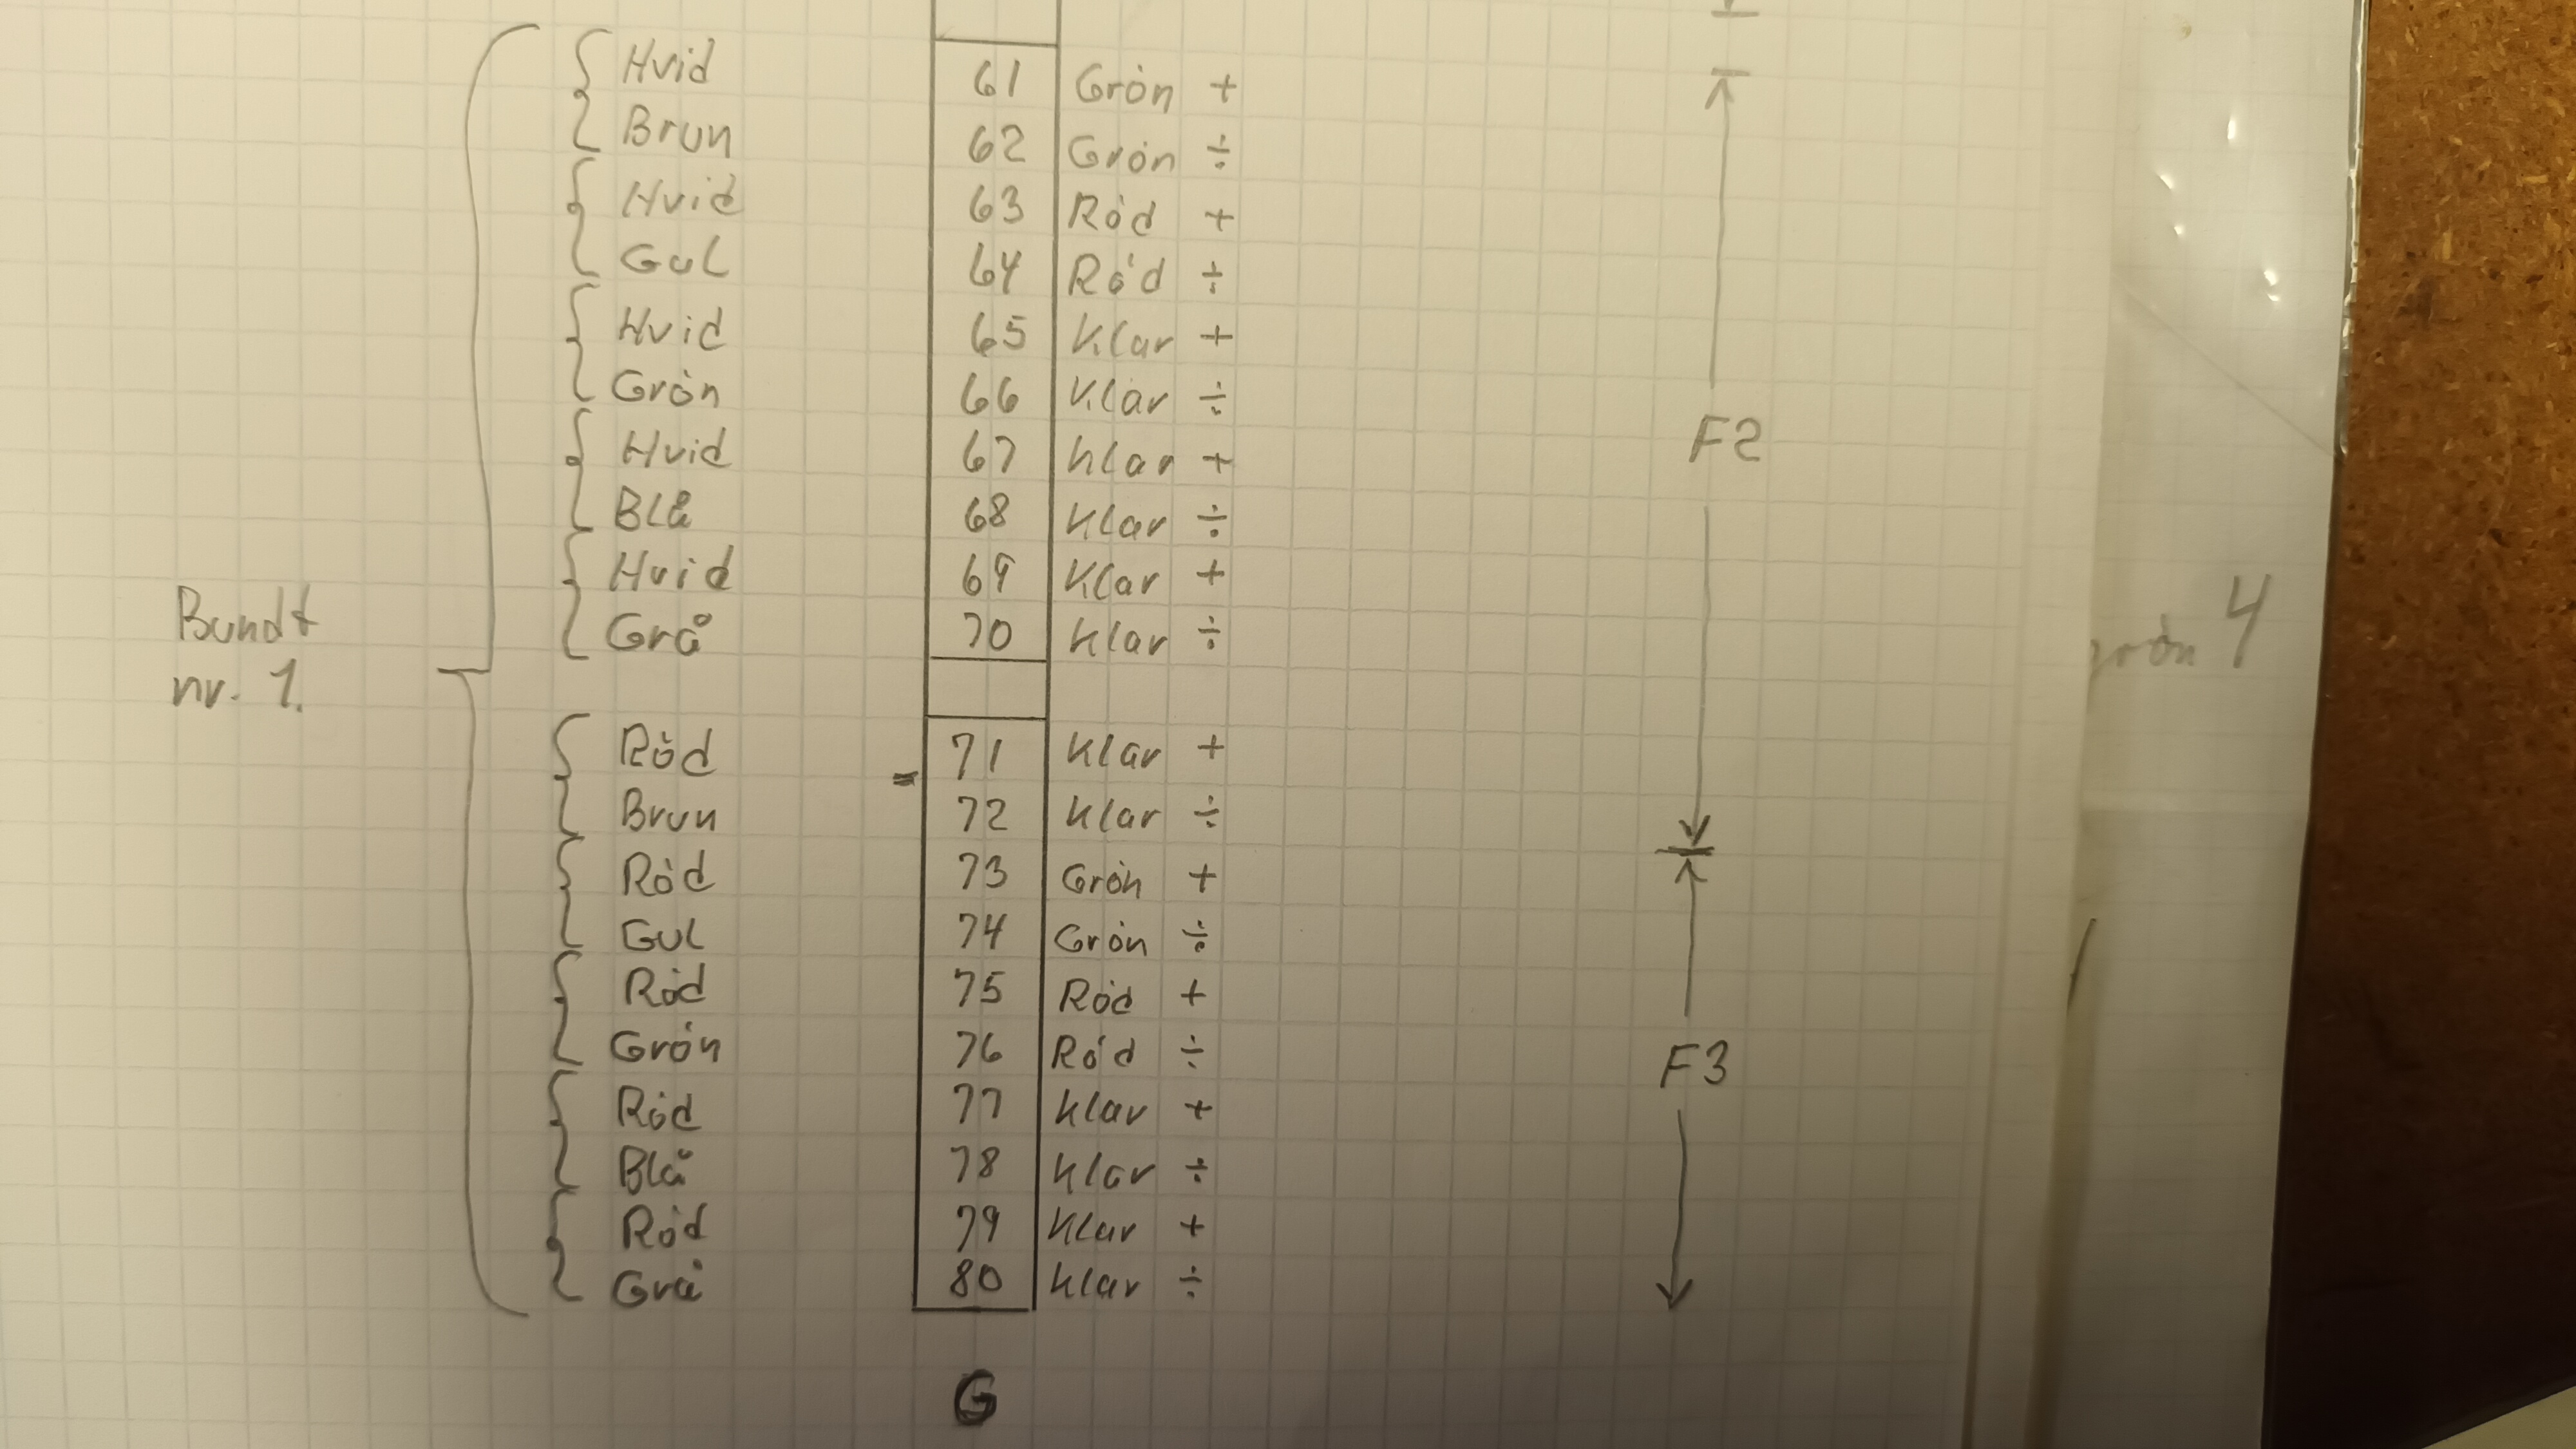 Hvid 61 Grön +
Brun 62 Grön ÷
Hvid 63 Röd +
Gul 64 Röd ÷
Hvid 65 Klar +
Grön 66 Klar ÷
F2
Hvid 67 Klar +
Blå 68 Klar ÷
Hvid 69 Klar +
Grå 70 Klar ÷
Bundt
nr. 1.
4
Röd 71 Klar +
Brun 72 Klar ÷
Röd 73 Grön +
Gul 74 Grön ÷
Röd 75 Röd +
Grön 76 Röd ÷
F3
Röd 77 Klar +
Blå 78 Klar ÷
Röd 79 Klar +
Grå 80 Klar ÷
G